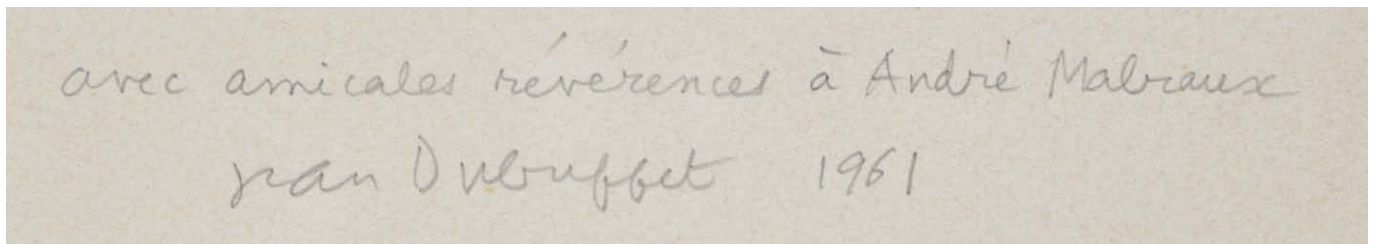 avec amicales révérences à André Malraux
jean Dubuffet 1961